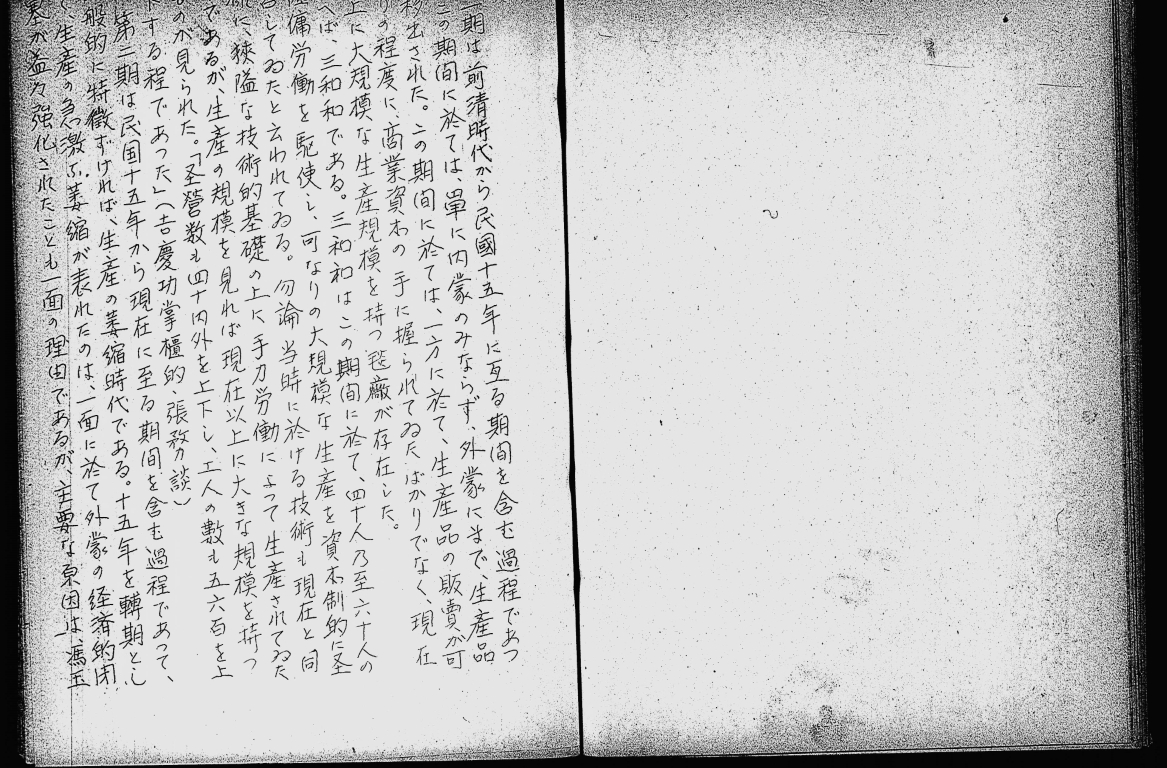 期は前清時代から民國十五年に亙る期间を含む過程であつ
この期间に於ては、單に内蒙のみならず、外蒙にまで、生産品
出された。この期间に於ては、一方に於て、生産品の販賣が可
りの程度に、商業資本の手に握られてゐたばかりでなく、現在
上に大規模な生産規模を持つ毯廠が存在した。
へば、三和和である。三和和はこの期间に於て、四十人乃至六十人の
傭労働を駆使し、可なりの大規模な生産を資本制的に
してゐたと云われてゐる。勿論当時に於ける技術も現在と同
に、狹隘な技術的基礎の上に手力労働によつて生産されてゐた
であるが、生産の規模を見れば現在以上に大きな規模を持つ
のが見られた。「圣營数も四十内外を上下し、工人の數も五六百を上
下する程であつた」（吉慶功掌櫃的、張 談）
第二期は民国十五年から現在に至る期间を含む過程であつて、
般的に特徴ずければ、生産の萎縮時代である。十五年を轉期とし
て生産の急激な萎縮が表れたのは、一面に於て外蒙の経済的闭
が益々強化されたことも一面の理由であるが、主要な原因は、馮玉